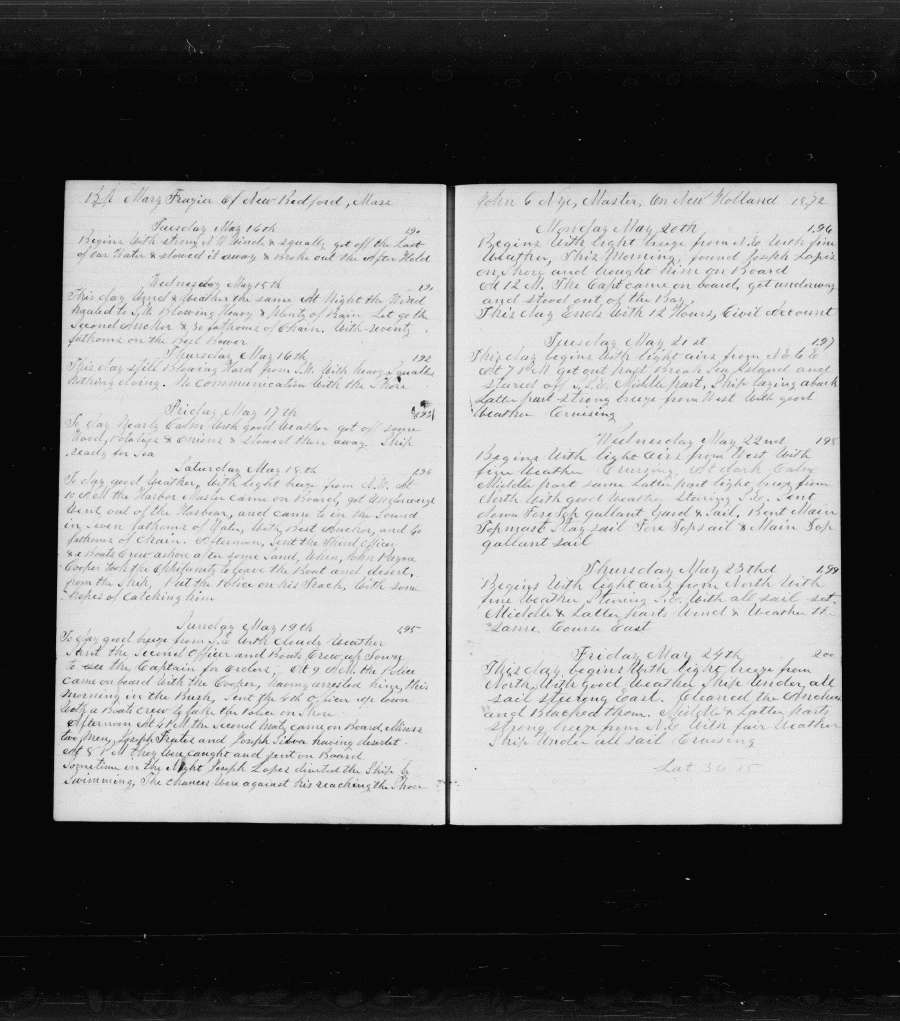 Bk Mary Frazier of New Bedford, Mass
Tuesday May 14th 190
Begins With strong N W Winds & squally got off the Last
of our Water & stowed it away & broke out the After Hold
Wednesday May 15th 191
This day Wind & Weather the same At Night the Wind
hauled to S.W. Blowing Heavy & Plenty of Rain Let go the
Second Anchor & 30 fathoms of Chain. With seventy
fathoms on the Best Bower
Thursday May 16th 192
This day still Blowing Hard from S.W. With heavy squalls
Nothing doing. No communication With the Shore
Friday May 17th 193
To day Nearly Calm With good Weather got off some
Wood, Potatoes & Onions & stowed them away. Ship
ready for Sea
Saturday May 18th 194
To day good Weather, With light breeze from N.W. At
10 A M the Harbor Master came on Board, got Underweigh
Went out of the Harbour, and came to in the Sound
in seven fathoms of Water, With Best Anchor, and 60
fathoms of Chain. Afternoon, Sent the Third Officer
& a Boats Crew ashore after some Sand, When, John Payne
Cooper took the Oppifunity to leave the Boat and desert,
from the Ship, Put the Police on his Track, With some
hopes of catching him
Sunday May 19th 195
To day good breeze from S.E. With cloudy Weather
Sent the Second Officer and Boats Crew up Town
to see the Captain for Orders, At 9 A.M. the Police
came on board With the Cooper, having arrested him, this
morning in the Bush, Sent the 4th Officer up town
With a Boats crew to take the Police on Shore
Afternoon At 4 P M the Second Mate came on Board, Minus
two Men, Joseph Frates and Joseph Silva having desertet
At 8 P M they Were caught and sent on Board
Sometime in the Night Joseph Lopes diserted the Ship by
Swimming, The chances Were against his reaching the Shore
John C Nye, Master, On New Holland 1872
Monday May 20th 196
Begins With light breeze from N.E. With fine
Weather, This Morning, found Joseph Lopes
on Shore and bought him on Board
At 12 M. The Capt came on board, got underway
and stood out of the Bay.
This day Ends With 12 Hours, Civil Account
Tuesday May 21st 197
This day begins With light airs from N.E. & E
At 7 P M got out past Break Sea Island and
steered off S.S.E. Middle part, Ship laying aback
Latter part strong breeze from West With good
Weather Cruising
Wednesday May 22nd 198
Begins With light airs from West With
fine Weather Cruising. At dark Calm
Middle part same Latter part light breeze from
North With good Weather Stering S.E. Sent
down Fore Top gallant Yard & Sail, Bent Main
Topmast Stay sail Fore Topsail & Main Top
gallant sail
Thursday May 23thd 199
Begins With light airs from North With
fine Weather Stering S.E. With all sail set
Middle & Latter parts Wind & Weather the
same. Course East
Friday May 24th 200
This day begins With light breeze from
North, With good Weather Ship Under all
sail steering East. Cleaned the Anchors
and Blacked them. Middle & Latter parts
strong breeze from N.E. With fair Weather
Ship Under all sail Cruising
Lat 36 15